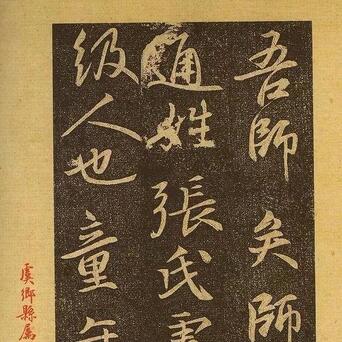 吾師矣師
通姓張氏虞
級人也童年
虞鄉縣屬